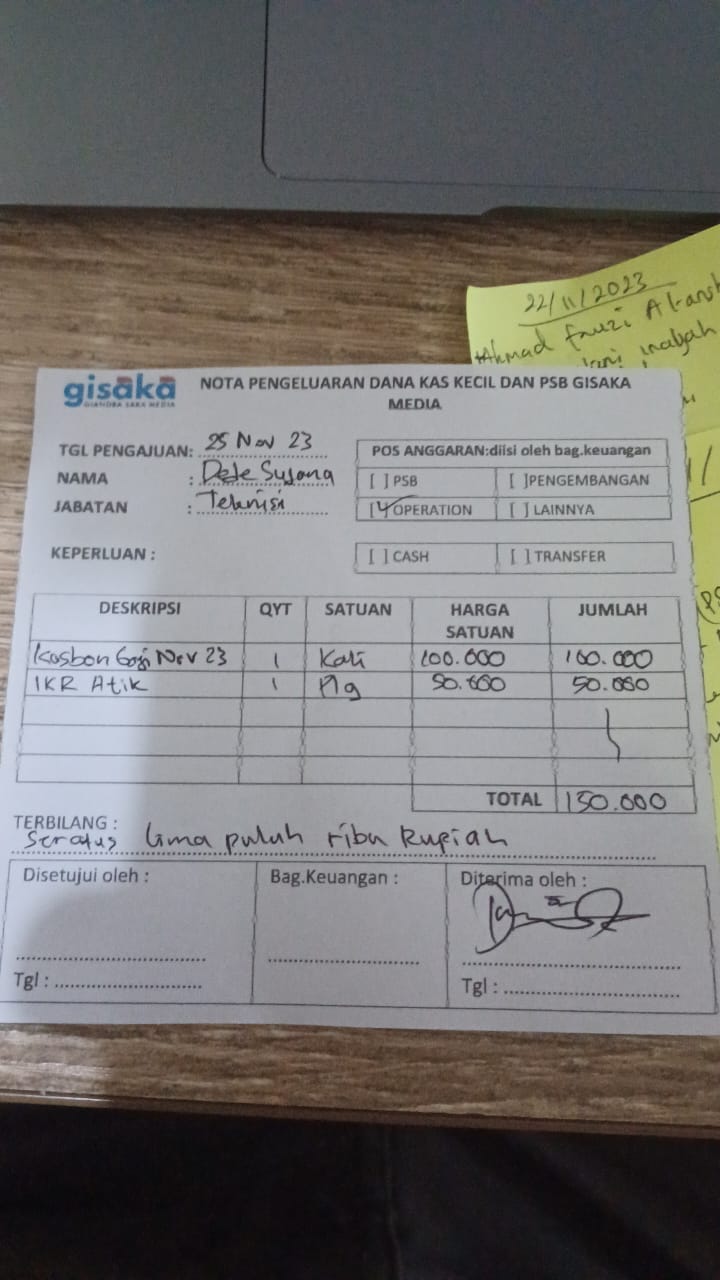 22/11/2023
Ahmad Fauzi Al-ansh
inabah
gisaka
GIANDRA SAKA MEDIA
NOTA PENGELUARAN DANA KAS KECIL DAN PSB GISAKA
MEDIA
TGL PENGAJUAN: 25 Nov 23
NAMA : Dede Sujana
JABATAN : Teknisi
POS ANGGARAN:diisi oleh bag.keuangan
[ ] PSB [ ]PENGEMBANGAN
[✓]OPERATION [ ] LAINNYA
KEPERLUAN :
[ ] CASH [ ] TRANSFER
DESKRIPSI QYT SATUAN HARGA SATUAN JUMLAH
Kasbon Gaji Nov 23 1 Kali 100.000 100.000
IKR Atik 1 Plg 50.000 50.000
TOTAL 150.000
TERBILANG :
Seratus lima puluh ribu Rupiah
Disetujui oleh : Bag.Keuangan : Diterima oleh :
Tgl : Tgl :